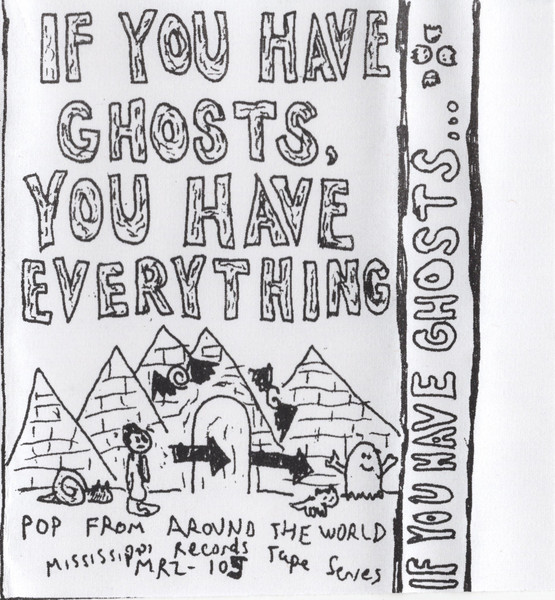 IF YOU HAVE
GHOSTS,
YOU HAVE
EVERYTHING
POP FROM AROUND THE WORLD
Mississippi Records Tape Series
MRZ-105
IF YOU HAVE GHOSTS...